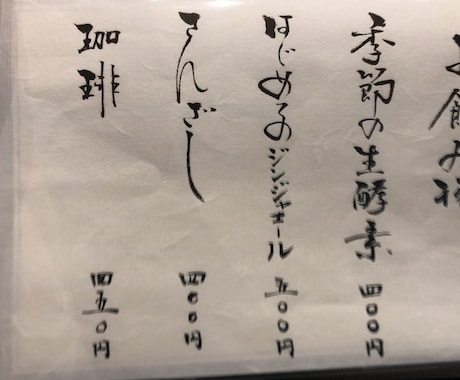 季節の生酵素 四〇〇円
はじめのジンジャエール 五〇〇円
さんざし 四〇〇円
珈琲 四五〇円